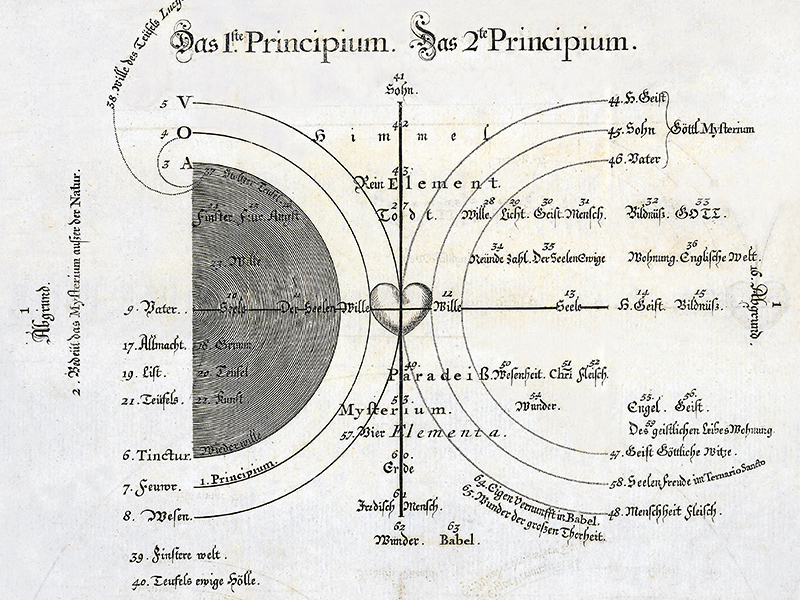 Das 1ste Principium. Das 2te Principium.
38. Wille des Teüfels Lucif
41
Sohn.
5 V
4 O
3 A
44. H. Geist
45. Sohn
46. Vater
Göttl. Mysterium
42
Himmel
43
Rein Element.
27
Todt.
28 29 30 31 32 33
Wille. Licht. Geist. Mensch. Bildnüß. GOTT.
34 35 36
Freünde zahl. Der Seelen Ewige Wohnung. Englische Welt.
Finster Feur Angst
23. Wille
1
Abgrund.
2. Bedeüt das Mysterium außer der Natur.
9. Vater. 10 Seele 11 Der Seelen Wille 12 Wille 13 Seele 14 H. Geist 15 Bildnüß.
16. Abgrund.
1
17. Allmacht. 18 Grimm
19. List. 20 Teüfel
21. Teüfels. 22 Kunst
49.
Paradeiß.
50 51 52
Wesenheit. Chri Fleisch.
53
Mysterium.
54
Wunder.
55. 56.
Engel. Geist.
59
Des geistlichen Leibes Wohnung
57. Vier Elementa.
6. Tinctur. Wiederwille
7. Feuwr. 1. Principium.
8. Wesen.
60.
Erde
61
Irdisch Mensch.
62 63
Wunder. Babel.
47. Geist Göttliche Witze.
58. Seelen Freude in Ternario Sancto
48. Menschheit Fleisch.
64. Eigen Vernunfft in Babel.
65. Wunder der großen Thorheit.
39. Finstere welt.
40. Teufels ewige Hölle.